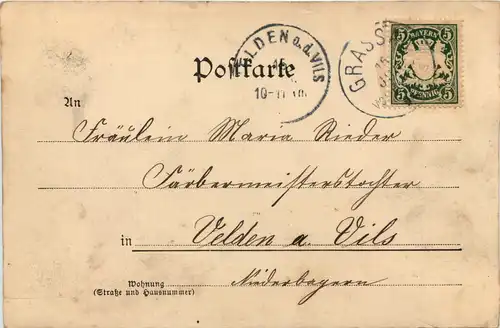 VELDEN a.d. VILS
10-11
GRASS
BAYERN
5 5
PFENNIG
5 5
Postkarte
An
Fräulein Maria Rieder
Färbermeisterstochter
in Velden a. Vils
Wohnung
(Straße und Hausnummer)
Niederbayern